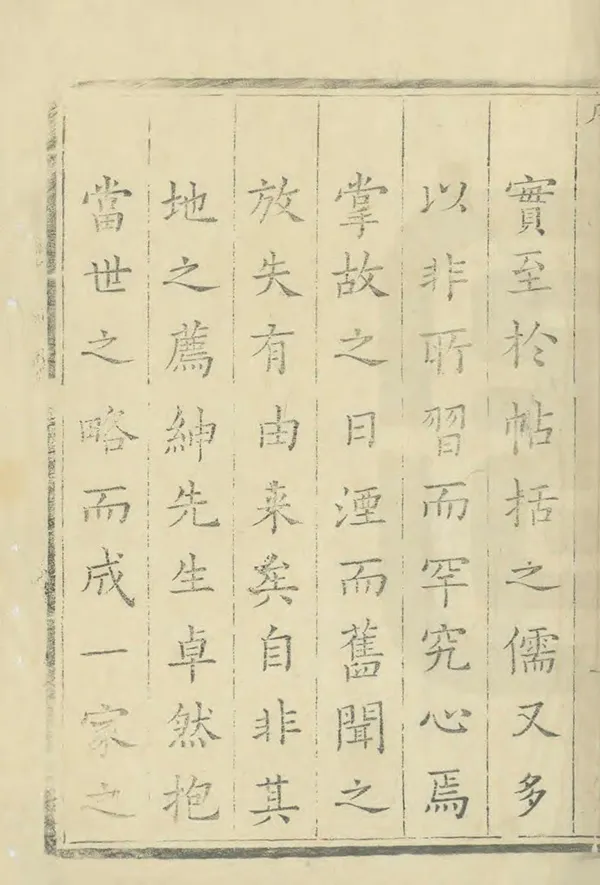 實至於帖括之儒又多
以非所習而罕究心焉
掌故之日湮而舊聞之
放失有由来矣自非其
地之薦紳先生卓然抱
當世之略而成一家之